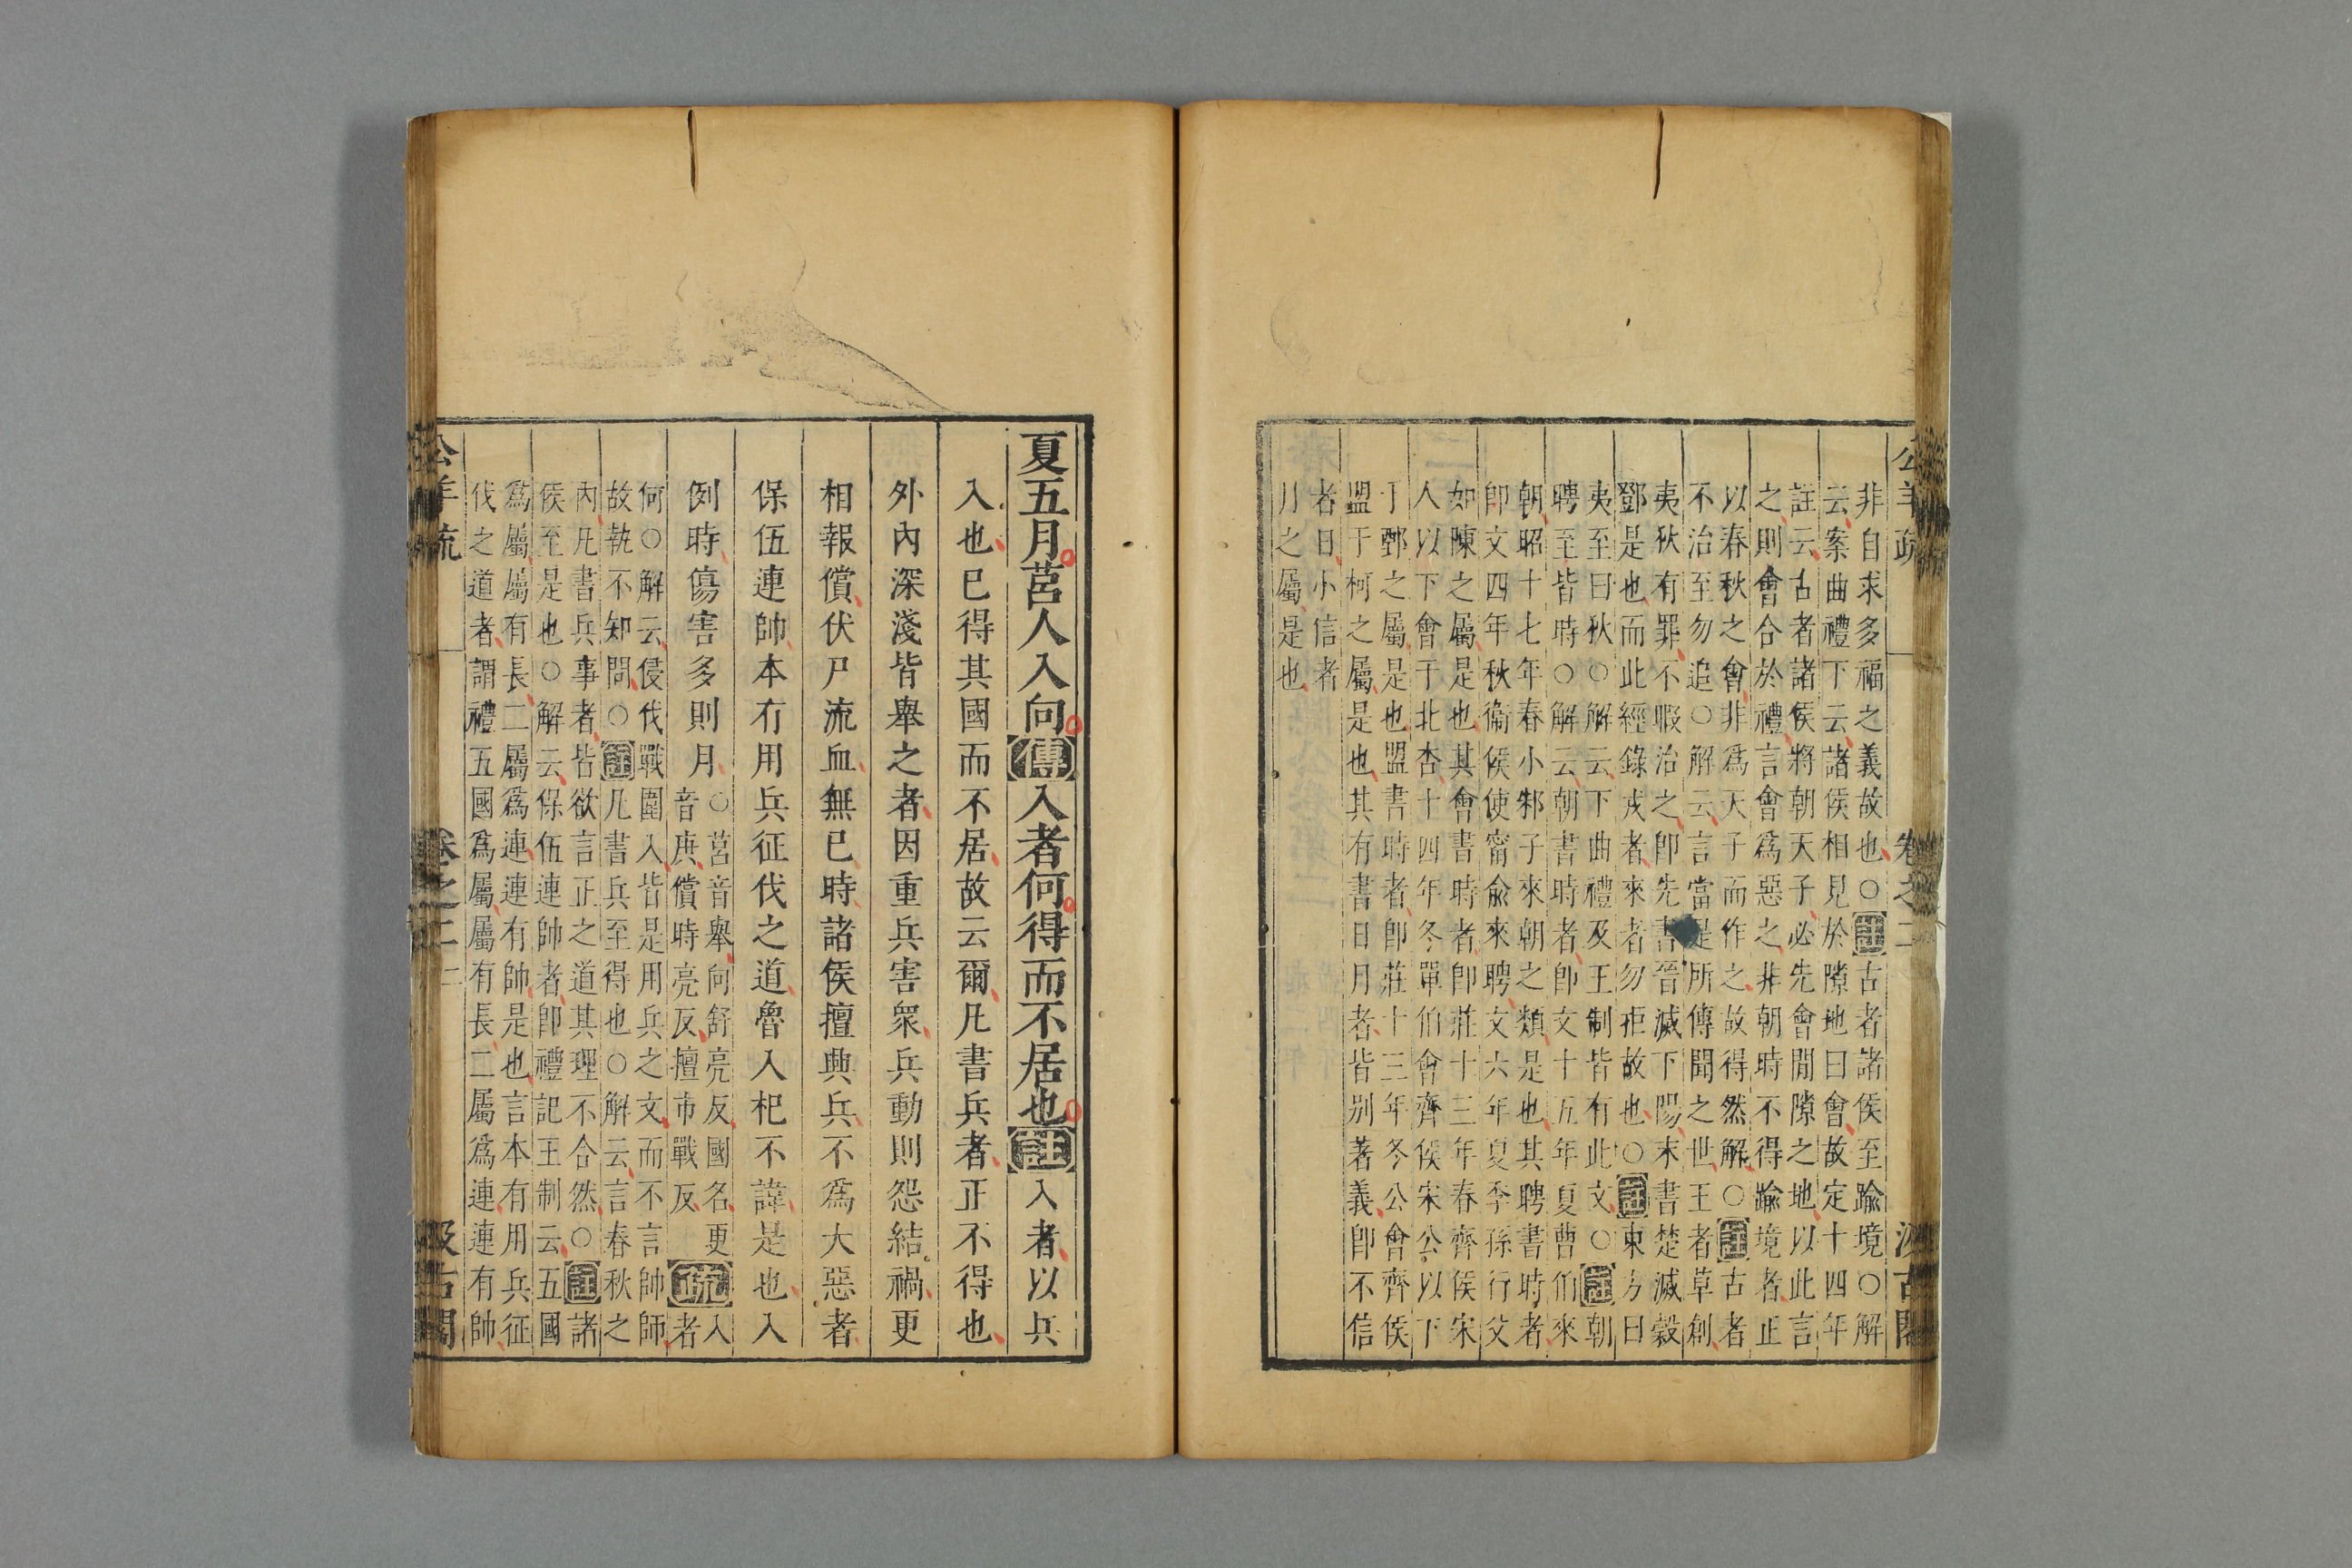 公羊疏 卷之二 汲古閣
非自求多福之義故也○註古者諸侯至踰境○解
云案曲禮下云諸侯相見於隙地曰會故定十四年
註云古者諸侯將朝天子必先會閒隙之地以此言
之則會合於禮言會爲惡之非朝時不得踰境者正
以春秋之會非爲天子而作之故得然解○註古者
不治至勿追○解云言當是所傳聞之世王者草創
夷狄有罪不暇治之卽先書晉滅下陽末書楚滅穀
鄧是也而此經錄戎者來者勿拒故也○註東方曰
夷至曰狄○解云下曲禮及王制皆有此文○註朝
聘至皆時○解云朝書時者卽文十五年夏曹伯來
朝昭十七年春小邾子來朝之類是也其聘書時者
卽文四年秋衞侯使甯俞來聘文六年夏季孫行父
如陳之屬是也其會書時者卽莊十三年春齊侯宋
人以下會于北杏十四年冬單伯會齊侯宋公以下
于鄄之屬是也盟書時者卽莊十三年冬公會齊侯
盟于柯之屬是也其有書日月者皆別著義卽不信
者日小信者
月之屬是也
夏五月莒人入向傳入者何得而不居也註入者以兵
入也已得其國而不居故云爾凡書兵者正不得也
外內深淺皆舉之者因重兵害衆兵動則怨結禍更
相報償伏尸流血無已時諸侯擅興兵不爲大惡者
保伍連帥本有用兵征伐之道魯入杞不諱是也入
例時傷害多則月○莒音舉向舒亮反國名更
音庚償時亮反擅市戰反疏入
者
何○解云侵伐戰圍入皆是用兵之文而不言帥師
故執不知問○註凡書兵至得也○解云言春秋之
內凡書兵事者皆欲言正之道其理不合然○註諸
侯至是也○解云保伍連帥者卽禮記王制云五國
爲屬屬有長二屬爲連連有帥是也言本有用兵征
伐之道者謂禮五國爲屬屬有長二屬爲連連有帥
公羊疏 卷之二 二 汲古閣